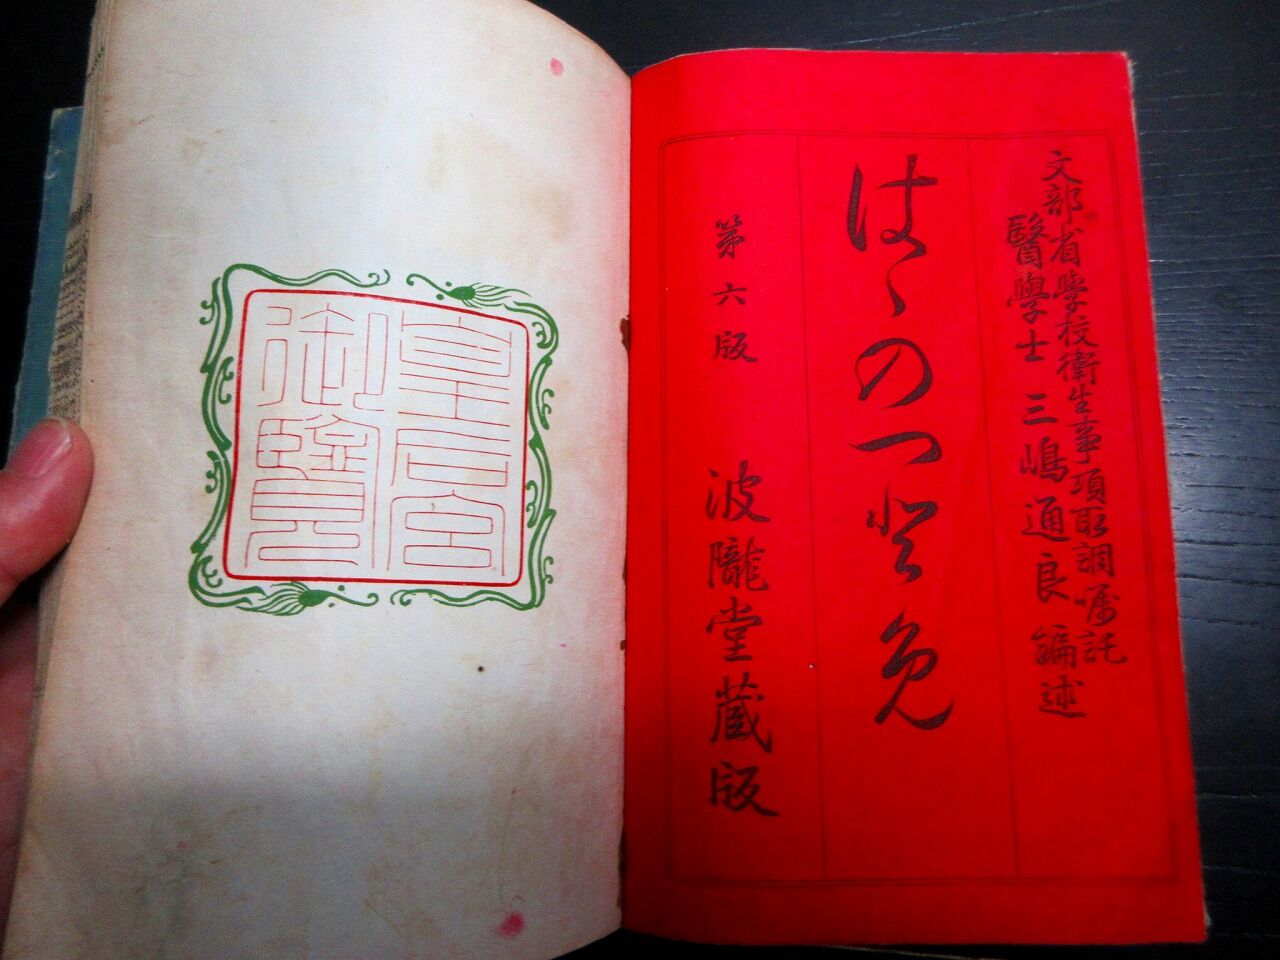 文部省学校衛生事項取調嘱託
醫學士 三嶋通良 編述
はゝのつとめ
第六版 波瀧堂蔵版
皇后宮
御覧